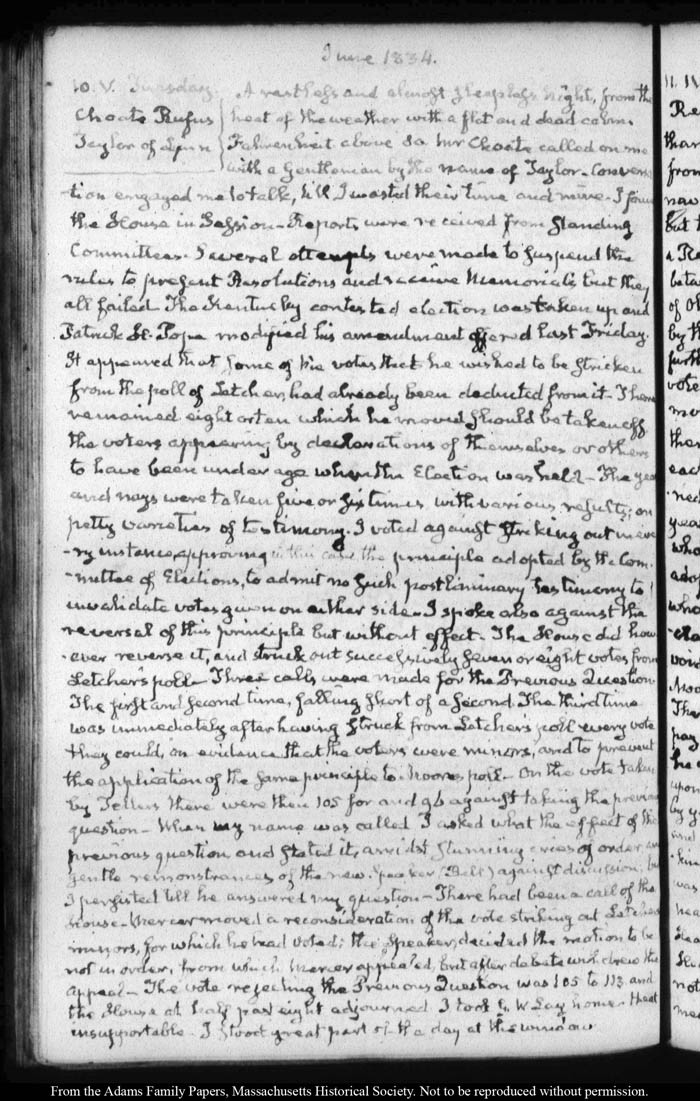 June 1834.
10. V. Tuesday. A restless and almost sleepless Night, from the
Choate Rufus heat of the weather with a flat and dead calm.
Taylor of Lynn Fahrenheit above 80. Mr Choate called on me
with a Gentleman by the name of Taylor. Conversa-
tion engaged me to talk, till I wasted their time and mine. I foun
the House in Session. Reports were received from Standing
Committees. Several attempts were made to suspend the
rules to present Resolutions and receive Memorials but they
all failed. The Kentucky contested election was taken up and
Patrick H. Pope modified his amendment offered last Friday.
It appeared that some of the votes that he wished to be stricken
from the poll of Letcher, had already been deducted from it. There
remained eight or ten which he moved should be taken off
the voters appearing by declarations of themselves or others
to have been under age when the Election was held - The yeas
and nays were taken five or six times with various results, on
petty varieties of testimony. I voted against striking out in eve
-ry instance, approving in this case the principle adopted by the Com-
-mittee of Elections, to admit no such postliminary testimony to
invalidate votes given on either side. I spoke also against the
reversal of this principle but without effect. The House did how
-ever reverse it, and struck out successively seven or eight votes from
Letcher's poll - Three calls were made for the Previous Question
The first and second time, falling short of a second. The third time
was immediately after having struck from Letcher's poll every vote
they could, on evidence that the voters were minors, and to prevent
the application of the same principle to Moore's poll - On the vote taken
by Tellers there were then 105 for and 96 against taking the previous
question - When my name was called I asked what the effect of the
previous question and stated it, amidst stunning cries of order and
gentle remonstrances of the new Speaker (Bell) against discussion; but
I persisted till he answered my question - There had been a call of the
House - Mercer moved a reconsideration of the vote striking out Letchers
minors, for which he had voted; the Speaker, decided the motion to be
not in order, from which Mercer appealed, but after debate withdrew the
appeal - The vote rejecting the Previous Question was 105 to 113 and
the House at half past eight adjourned I took G. W Lay home - Heat
insupportable. I stood great part of the day at the window
From the Adams Family Papers, Massachusetts Historical Society. Not to be reproduced without permission.